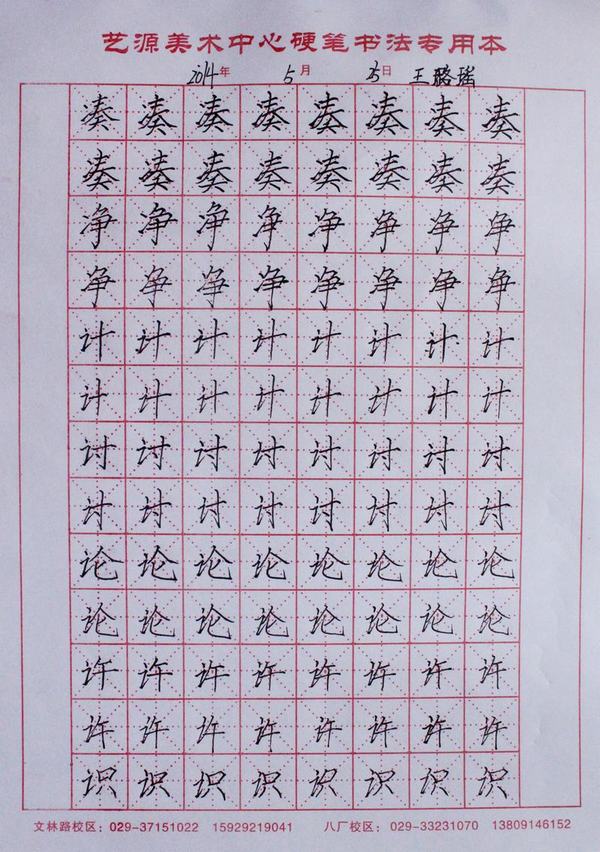 艺源美术中心硬笔书法专用本
2014年 5月 25日 王璐瑶
凑凑凑凑凑凑凑凑
凑凑凑凑凑凑凑凑
净净净净净净净净
净净净净净净净净
计计计计计计计计
计计计计计计计计
讨讨讨讨讨讨讨讨
讨讨讨讨讨讨讨讨
论论论论论论论论
论论论论论论论论
许许许许许许许许
许许许许许许许许
识识识识识识识识
文林路校区：029-37151022 15929219041 八厂校区：029-33231070 13809146152